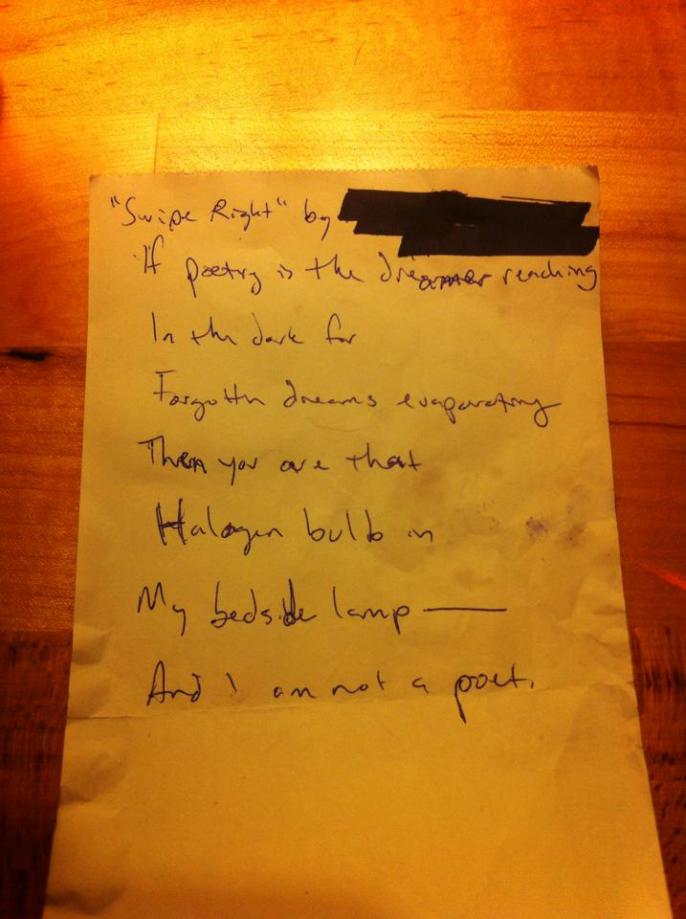 "Swipe Right" by
If poetry is the dreamer reaching
In the dark for
Forgotten dreams evaporating
Then you are that
Halogen bulb in
My bedside lamp —
And I am not a poet.